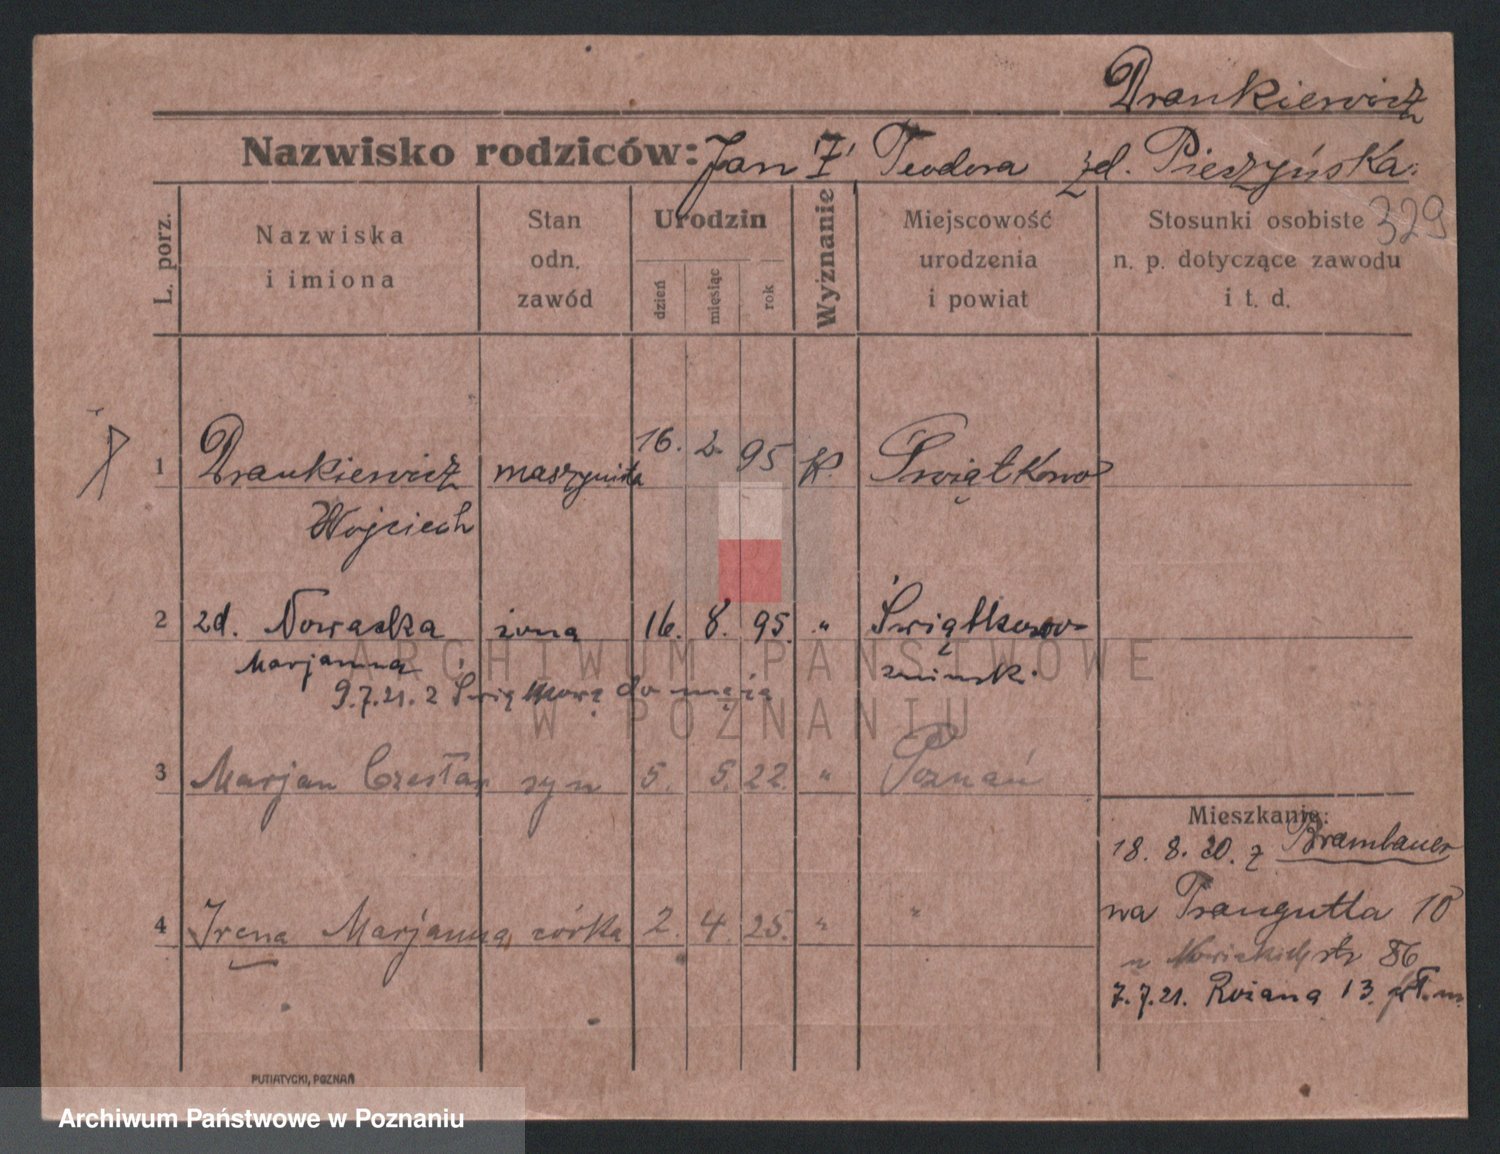 Drankiewicz
Nazwisko rodziców: Jan Teodora zd. Pieszyńska
329
L. porz.
Nazwiska
i imiona
Stan
odn.
zawód
Urodzin
dzień
miesiąc
rok
Wyznanie
Miejscowość
urodzenia
i powiat
Stosunki osobiste
n. p. dotyczące zawodu
i t. d.
1 Drankiewicz maszynista 16. 2. 95 k. Świątkowo
Wojciech
2 zd. Nowacka żona 16. 8. 95. " Świątkowo-
Marjanna żninski
9.7.21. z Świątkowa do męża
3 Marjan Czesław syn 5. 5. 22. " Poznań
4 Irena Marjanna córka 2. 4. 25. " "
Mieszkanie:
18. 8. 20. z Brambauer
na Traugutta 10
86
7.7.21. Różana 13.
PUTIATYCKI, POZNAŃ
ARCHIWUM PAŃSTWOWE
W POZNANIU
Archiwum Państwowe w Poznaniu